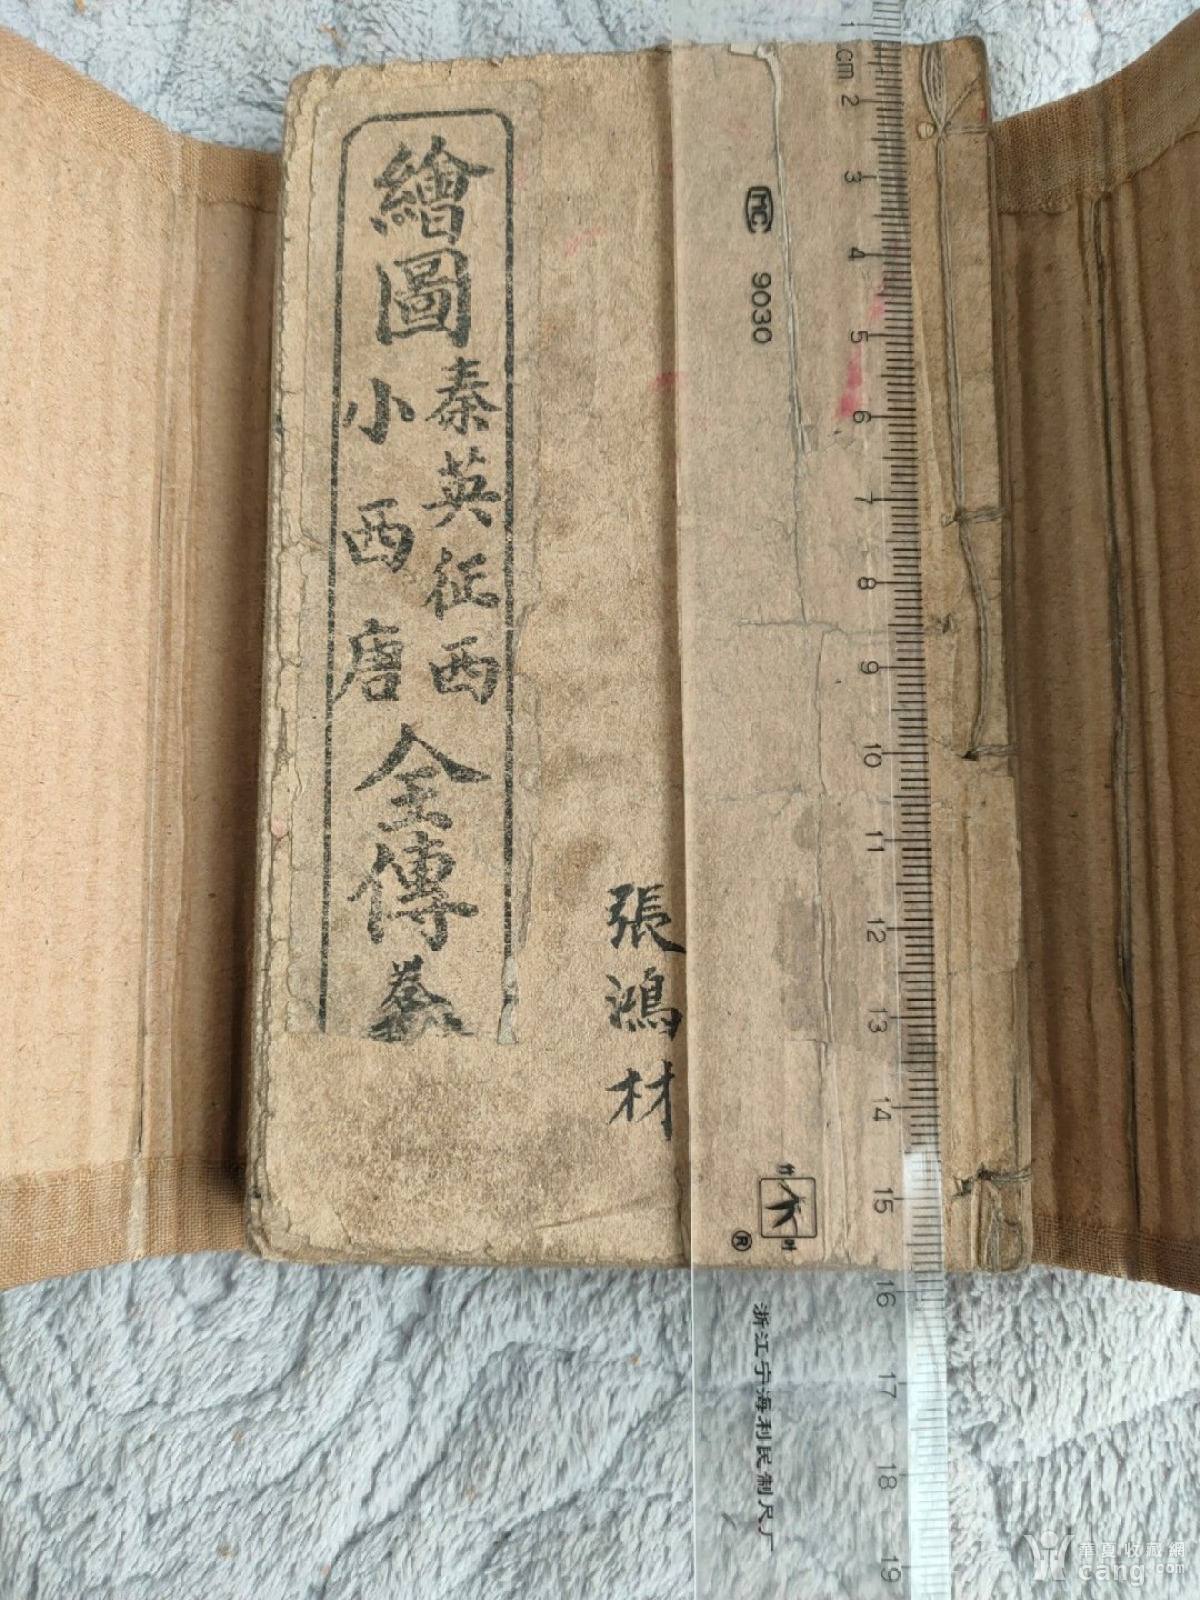 繪圖
秦英征西
小西唐
全傳
卷
張鴻材
1cm 2 3 4 5 6 7 8 9 10 11 12 13 14 15 16 17 18 19
MC 9030
竹
叶
®
浙江宁海利民制尺厂
華夏收藏網
cang.com